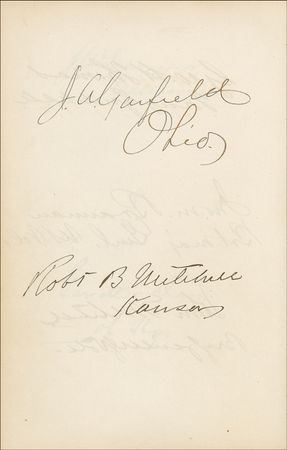 J. A. Garfield
Ohio.
Robt B Mitchell
Kansas